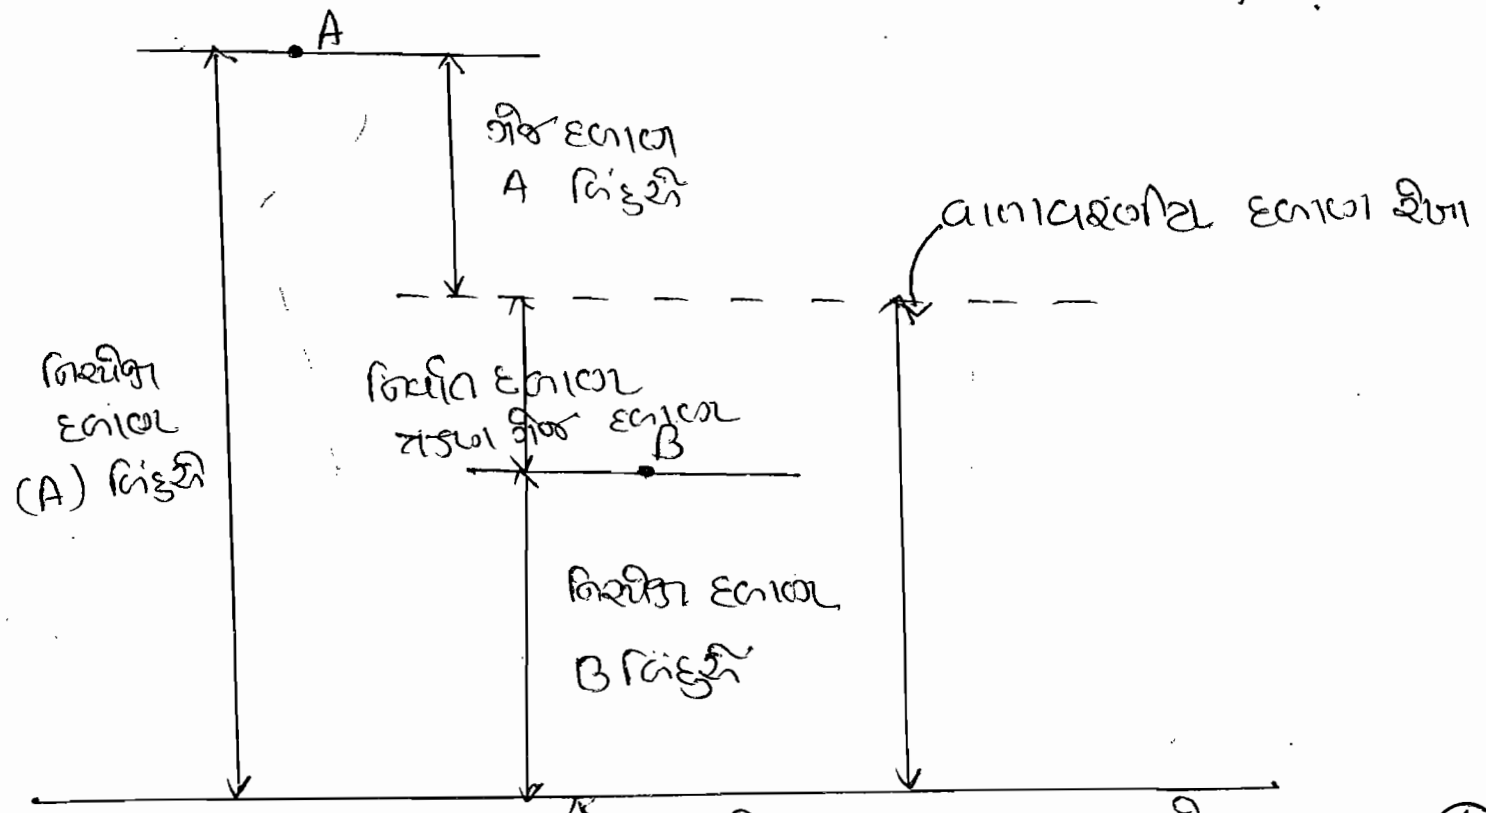 A
ગેજ દબાણ
A બિંદુએ
વાતાવરણીય દબાણ રેખા
નિરપેક્ષ
દબાણ
(A) બિંદુએ
નિર્વાત દબાણ
અથવા ગેજ દબાણ
B
નિરપેક્ષ દબાણ
B બિંદુએ